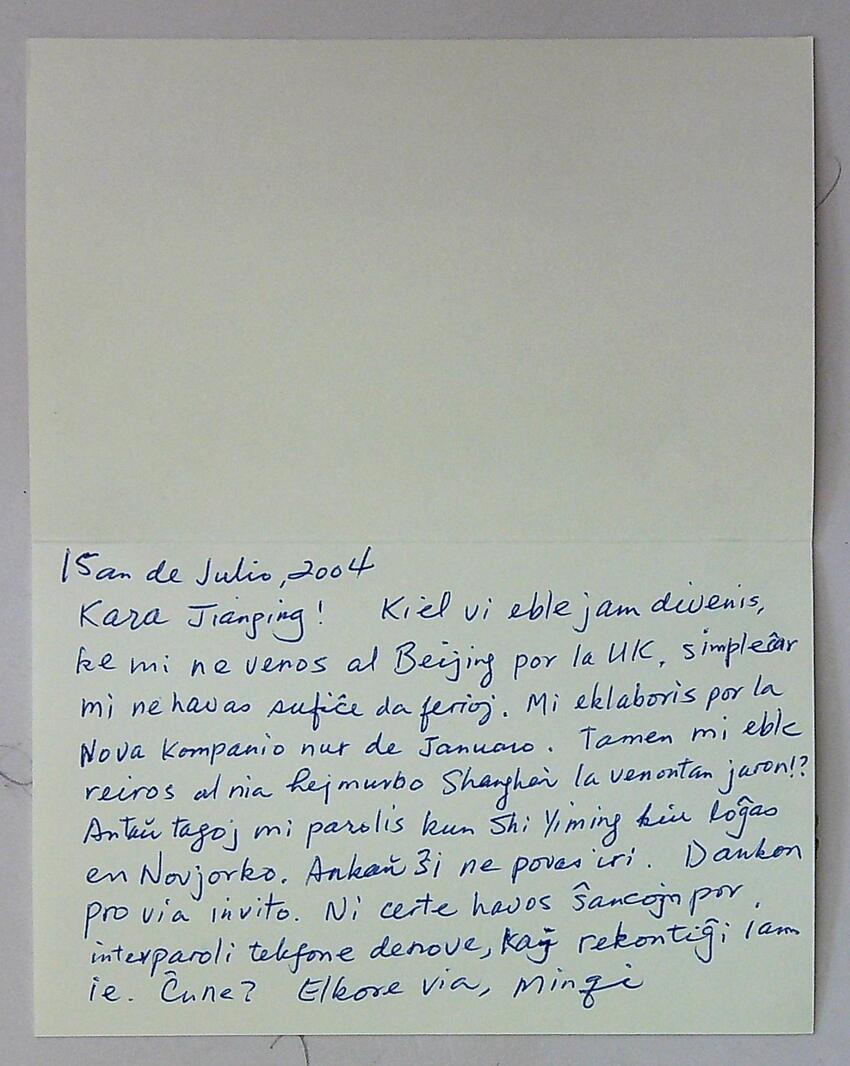 15an de Julio, 2004
Kara Jianping! Kiel vi eble jam divenis,
ke mi ne venos al Beijing por la UK, simple ĉar
mi ne havas sufiĉe da ferioj. Mi eklaboris por la
Nova Kompanio nur de Januaro. Tamen mi eble
reiros al nia hejmurbo Shanghai la venontan jaron!?
Antaŭ tagoj mi parolis kun Shi Yiming kiu loĝas
en Novjorko. Ankaŭ ŝi ne povas iri. Dankon
pro via invito. Ni certe havos ŝancojn por
interparoli telefone denove, kaj rekontiĝi iam
ie. Ĉu ne? Elkore via, Minqi